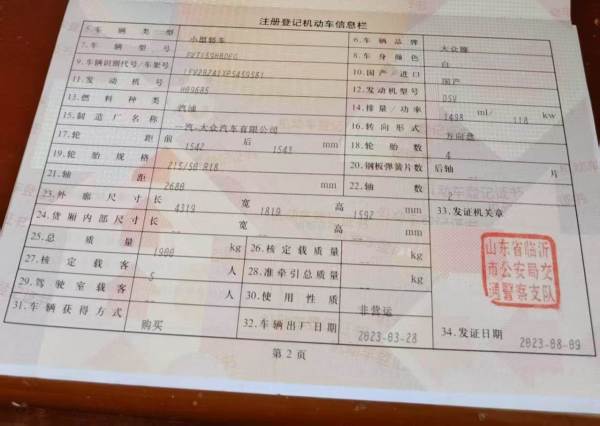 注册登记机动车信息栏
5.车辆类型 小型轿车 6.车辆品牌 大众牌
7.车辆型号 8.车身颜色 白
9.车辆识别代号/车架号 10.国产/进口 国产
11.发动机号 H09685 12.发动机型号 DSV
13.燃料种类 汽油 14.排量/功率 1498 ml/ 118 kw
15.制造厂名称 一汽-大众汽车有限公司 16.转向形式 方向盘
17.轮距 前 1542 后 1543 mm 18.轮胎数 4
19.轮胎规格 215/50 R18 20.钢板弹簧片数 后轴 片
21.轴距 2680 mm 22.轴数 2
23.外廓尺寸 长 4319 宽 1819 高 1592 mm 33.发证机关章
24.货厢内部尺寸 长 宽 高 mm
25.总质量 1900 kg 26.核定载质量 kg
27.核定载客 5 人 28.准牵引总质量 kg
29.驾驶室载客 人 30.使用性质 非营运
31.车辆获得方式 购买 32.车辆出厂日期 2023-03-28 34.发证日期 2023-08-09
山东省临沂
市公安局交
通警察支队
第2页